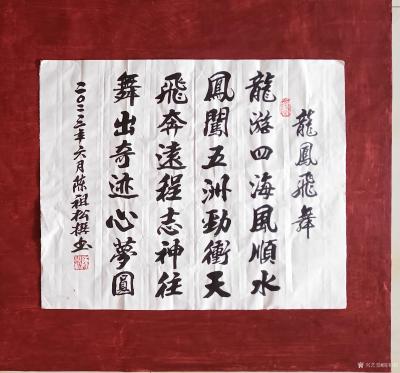 龍鳳飛舞
龍游四海風順水
鳳闖五洲勁衝天
飛奔遠程志神往
舞出奇迹心夢圓
二〇二三年六月陈祖松撰書